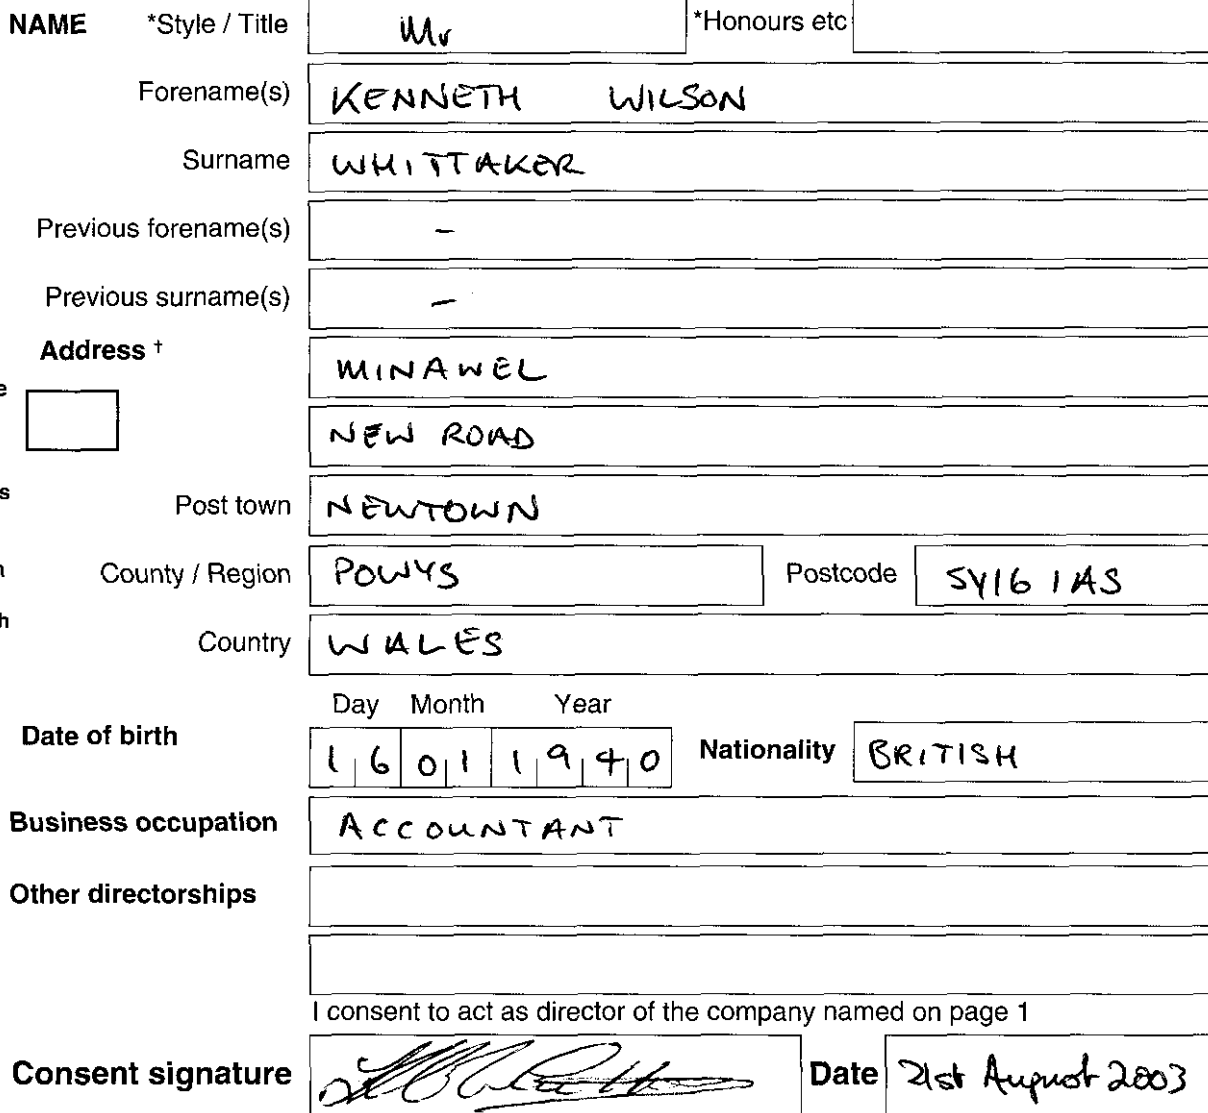 NAME *Style / Title Mr *Honours etc
Forename(s) KENNETH WILSON
Surname WHITTAKER
Previous forename(s) -
Previous surname(s) -
Address †
MINAWEL
e
NEW ROAD
s
Post town NEWTOWN
County / Region POWYS Postcode SY16 1AS
h
Country WALES
Day Month Year
Date of birth 16 01 1940 Nationality BRITISH
Business occupation ACCOUNTANT
Other directorships
I consent to act as director of the company named on page 1
Consent signature Date 21st August 2003